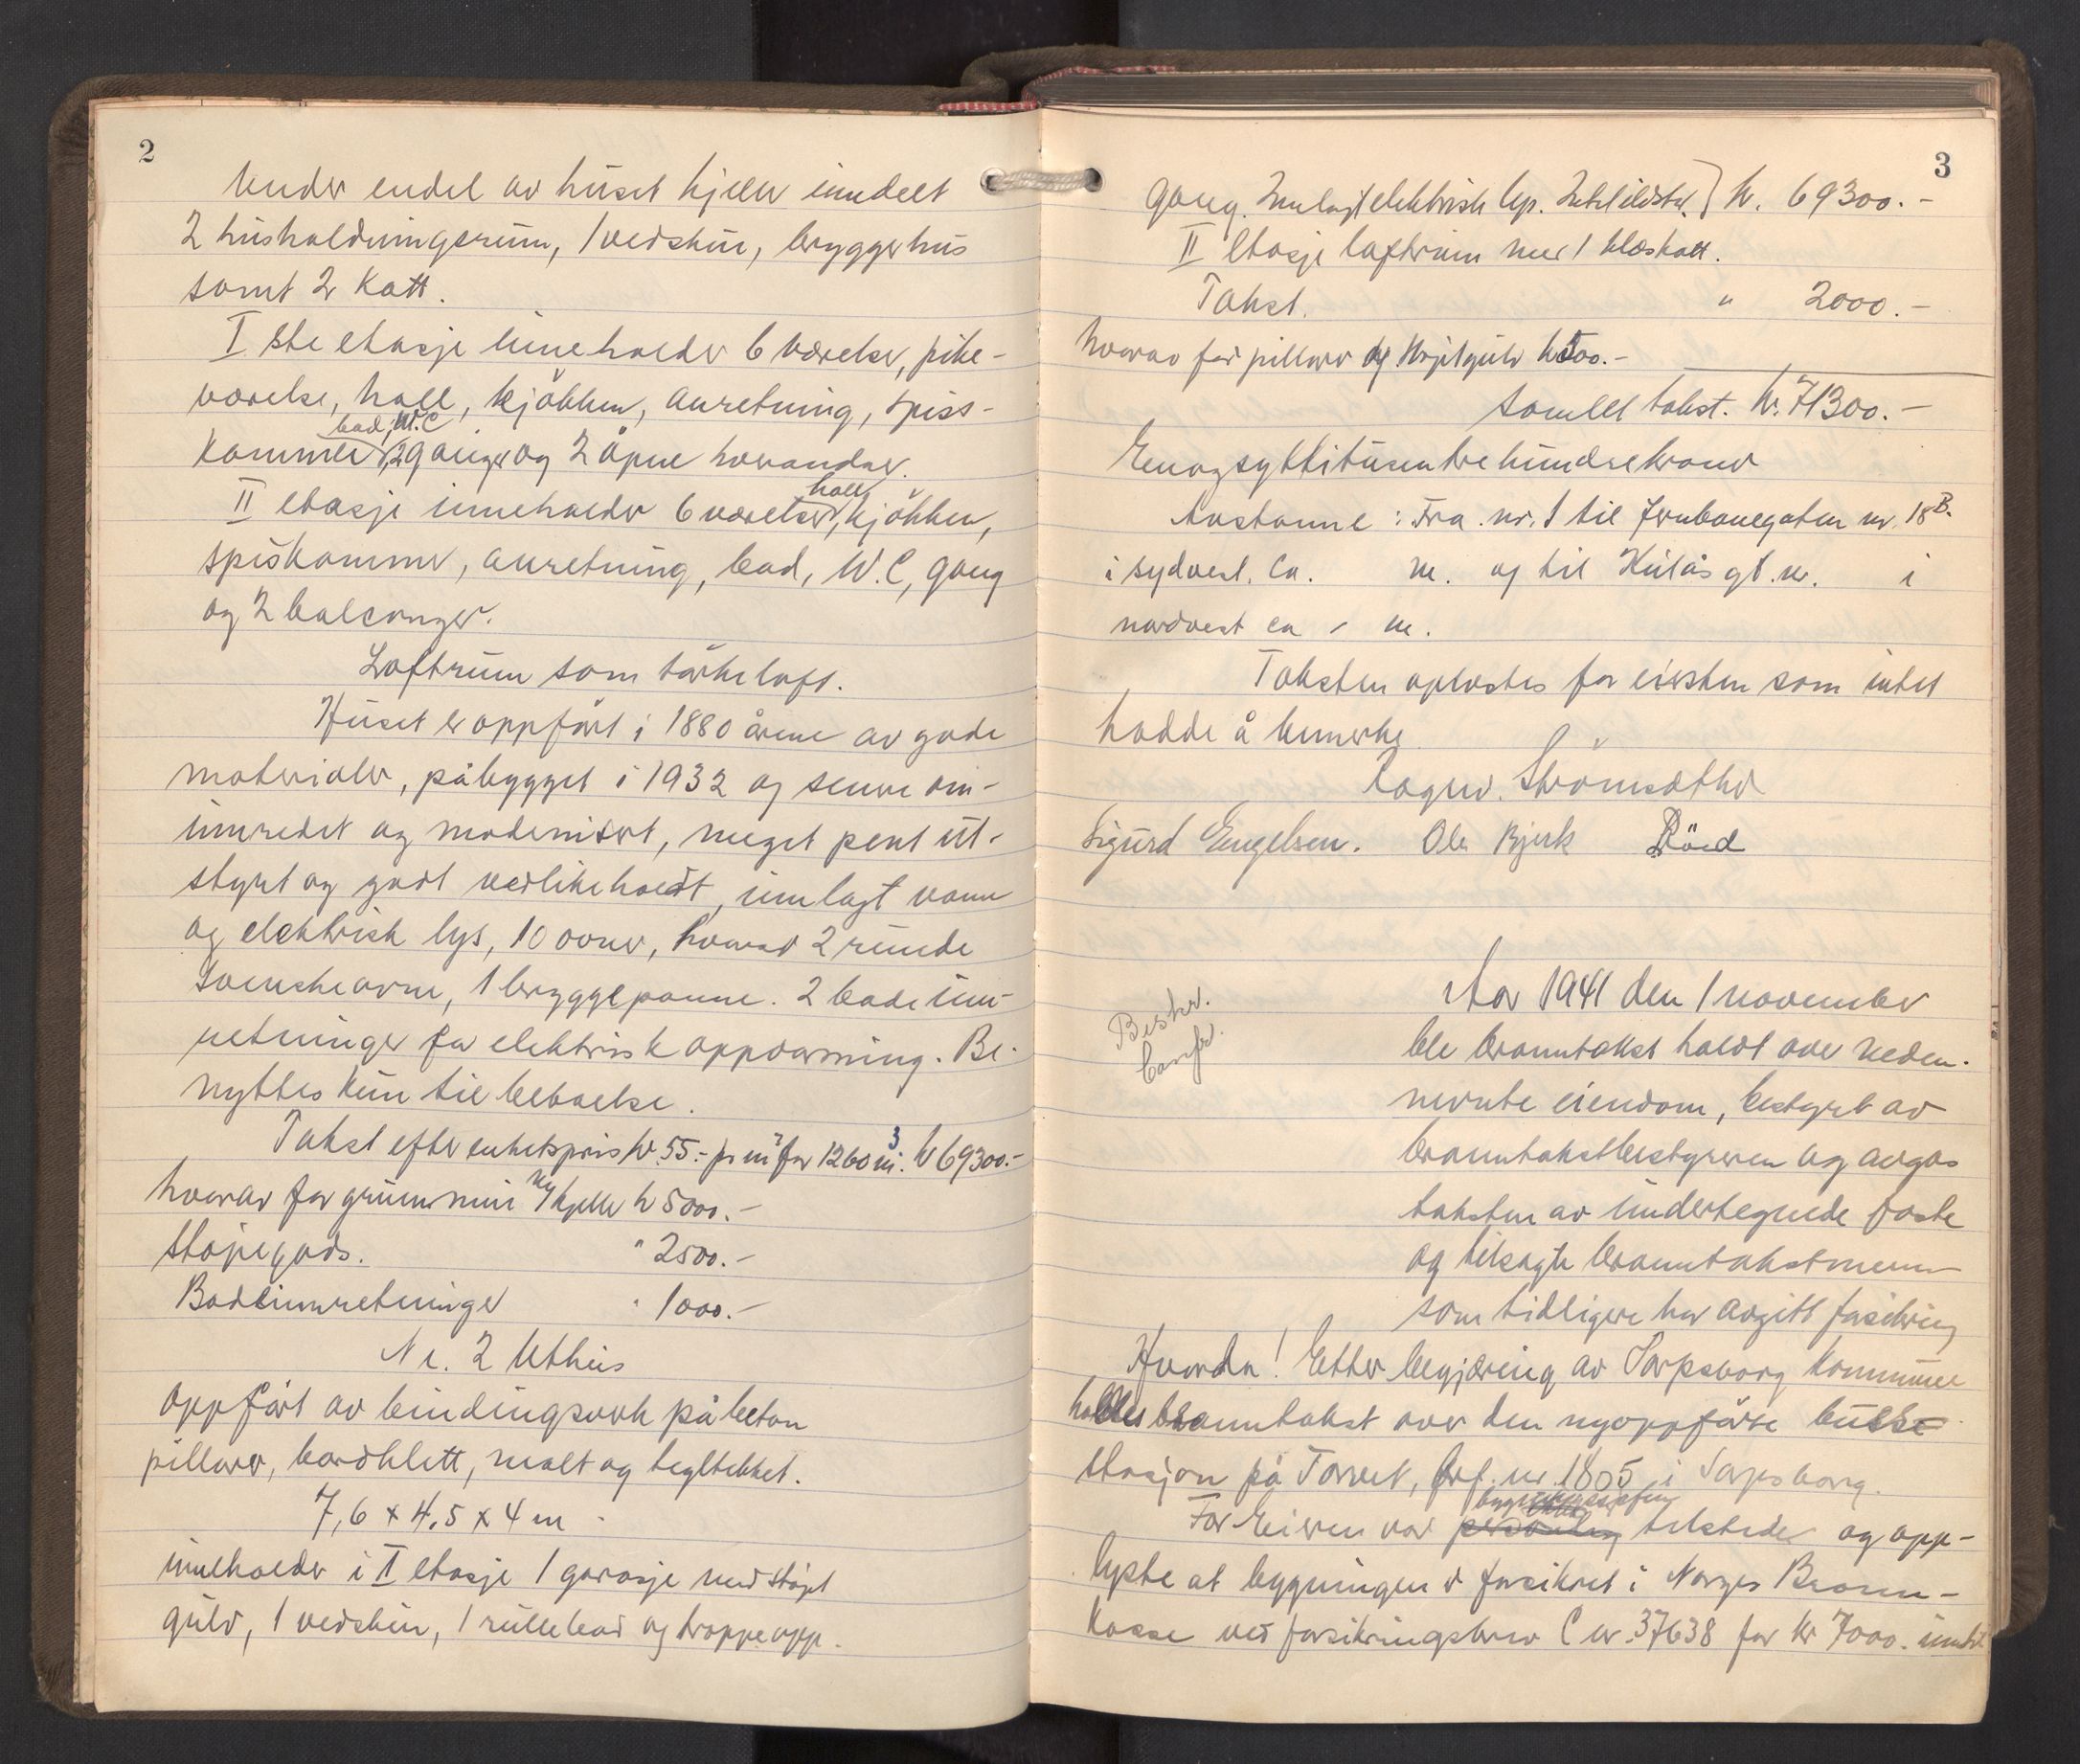 2
Under endel av huset kjeller inndelt
2 husholdningsrum, 1 vedskur, bryggerhus
samt 2 kott.
I ste etasje inneholder 6 værelser, pike-
værelse, hall, kjökken, anretning, spiss-
bad, W.C
kammer, 2 ganger og 2 åpne verandaer.
hall
II etasje inneholder 6 værelser, kjökken,
spiskammer, anretning, bad, W.C, gang
og 2 balconger.
Loftrum som törkeloft.
Huset er oppfört i 1880 årene av gode
materialer, påbygget i 1932 og senere om-
innredet og modernisert, meget pent ut-
styrt og godt vedlikeholdt, innlagt vann
og elektrisk lys, 10 ovner, hvorav 2 runde
svenskeovne, 1 bryggepanne. 2 badeinn-
retninger for elektrisk oppvarming. Be-
nyttes kun til beboelse.
Takst efter enhetspris kr. 55.- pr m³ for 1260 m³. kr 69300.-
hvorav for grunnmur og kjeller kr 5000.-
Støpegods. " 2500.-
Badeinnretninger " 1000.-
Nr. 2 Uthus
oppfört av bindingsverk på beton
pillarer, bordklett, malt og tegltekket.
7,6 x 4,5 x 4 m
inneholder i I etasje 1 garasje med støpt
gulv, 1 vedskur, 1 rullebod og trappeopp-
3
gang. Innlagt elektrisk lys. Intet ildsted. } kr. 69300.-
II etasje loftrum med 1 klæskott.
Takst. " 2000.-
hvorav for pillarer og støptgulv kr 500.-
Samlet takst. kr. 71300.-
Enogsyttitusentrehundrekroner
Avstanne: Fra nr. 1 til Jernbanegaten nr. 18 B.
i sydvest. ca. m. og til Kulås gt. nr. i
nordvest ca - m.
Taksten oplestes for eiersken som intet
hadde å bemerke
Ragnv. Strömsæther
Sigurd Engelsen. Ole Bjerk Röed
Beskr.
Aar 1941 den 1 november
ble branntakst holdt over neden-
nevnte eiendom, bestyrt av
branntakstbestyreren og avgas
taksten av undertegnede faste
og tilsagte branntakstmenn
som tidligere har avgitt forsikring
Hvorda! Etter begjæring av Sarpsborg kommune
holdtes branntakst over den nyoppförte busse
stasjon på Torvet, Brf. nr. 1805 i Sarpsborg.
For Eieren var personlig tilstede og opp-
lyste at bygningen er forsikret i Norges Brann-
kasse ved forsikringsbrev C nr. 37638 for kr 7000. inntil